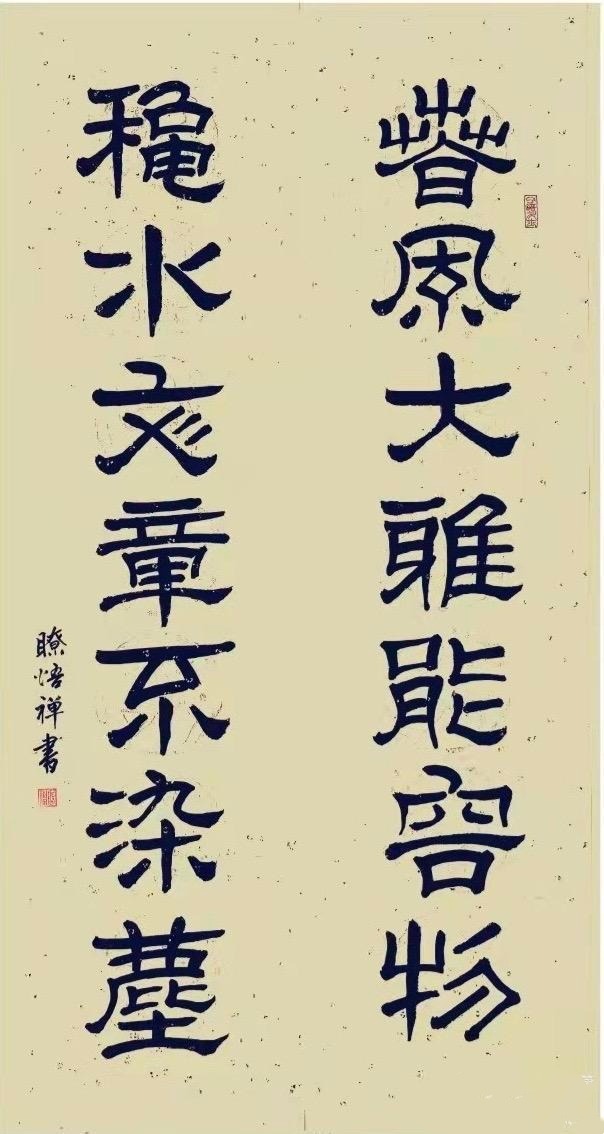 春風大雅能容物
秋水文章不染塵
瞭悟禪書